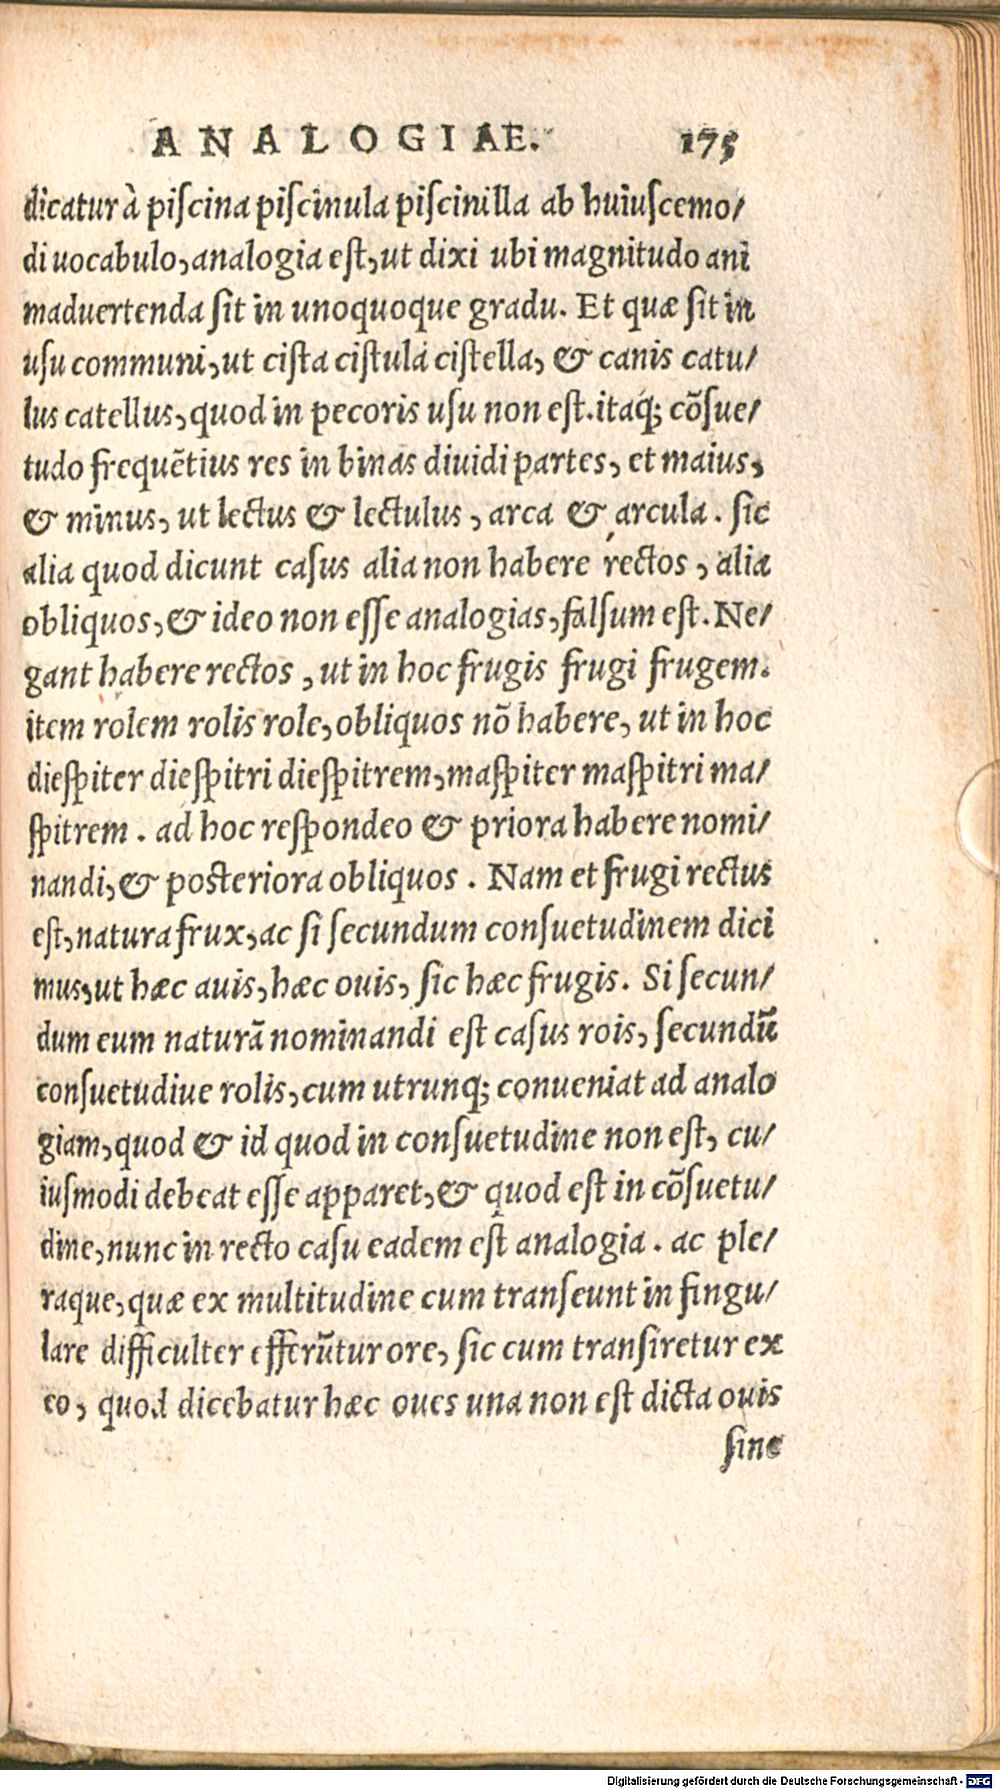 ANALOGIAE. 175
dicatur à piscina piscinula piscinilla ab huiuscemo/
di uocabulo, analogia est, ut dixi ubi magnitudo ani
maduertenda sit in unoquoque gradu. Et quæ sit in
usu communi, ut cista cistula cistella, & canis catu/
lus catellus, quod in pecoris usu non est. itaq; cōsue/
tudo frequētius res in binas diuidi partes, et maius,
& minus, ut lectus & lectulus, arca & arcula. sic
alia quod dicunt casus alia non habere rectos, alia
obliquos, & ideo non esse analogias, falsum est. Ne/
gant habere rectos, ut in hoc frugis frugi frugem.
item rolem rolis role, obliquos nō habere, ut in hoc
diespiter diespitri diespitrem, maspiter maspitri ma/
spitrem. ad hoc respondeo & priora habere nomi/
nandi, & posteriora obliquos. Nam et frugi rectus
est, natura frux, ac si secundum consuetudinem dici
mus, ut hæc auis, hæc ouis, sic hæc frugis. Si secun/
dum eum naturā nominandi est casus rois, secundū
consuetudiue rolis, cum utrunq; conueniat ad analo
giam, quod & id quod in consuetudine non est, cu/
iusmodi debeat esse apparet, & quod est in cōsuetu/
dine, nunc in recto casu eadem est analogia. ac ple/
raque, quæ ex multitudine cum transeunt in singu/
lare difficulter efferūtur ore, sic cum transiretur ex
eo, quod dicebatur hæc oues una non est dicta ouis
sine
Digitalisierung gefördert durch die Deutsche Forschungsgemeinschaft - DFG